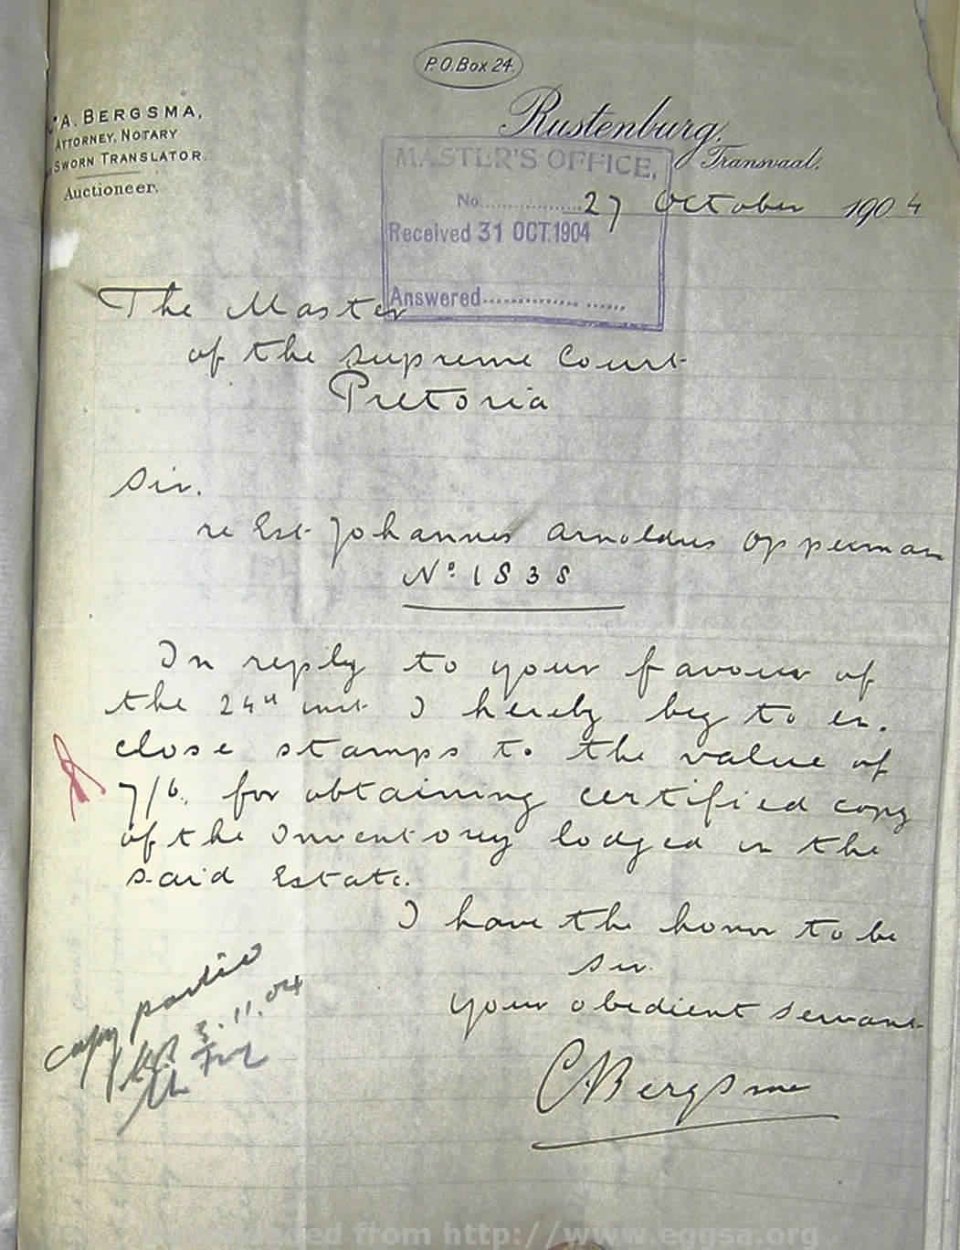 P.O. Box 24.
A. BERGSMA,
ATTORNEY, NOTARY
SWORN TRANSLATOR.
Auctioneer.
Rustenburg,
Transvaal.
27 October 1904
MASTER'S OFFICE,
No.
Received 31 OCT. 1904
Answered
The Master
of the Supreme Court
Pretoria
Sir.
re Est. Johannes Arnoldus Opperman
No. 1838
In reply to your favour of
the 24th inst I hereby beg to en.
close stamps to the value of
7/6. for obtaining certified copy
of the Inventory lodged in the
said Estate.
I have the honor to be
Sir.
your obedient servant
C.A. Bergsma
copy
3.11.04
from http://www.eggsa.org